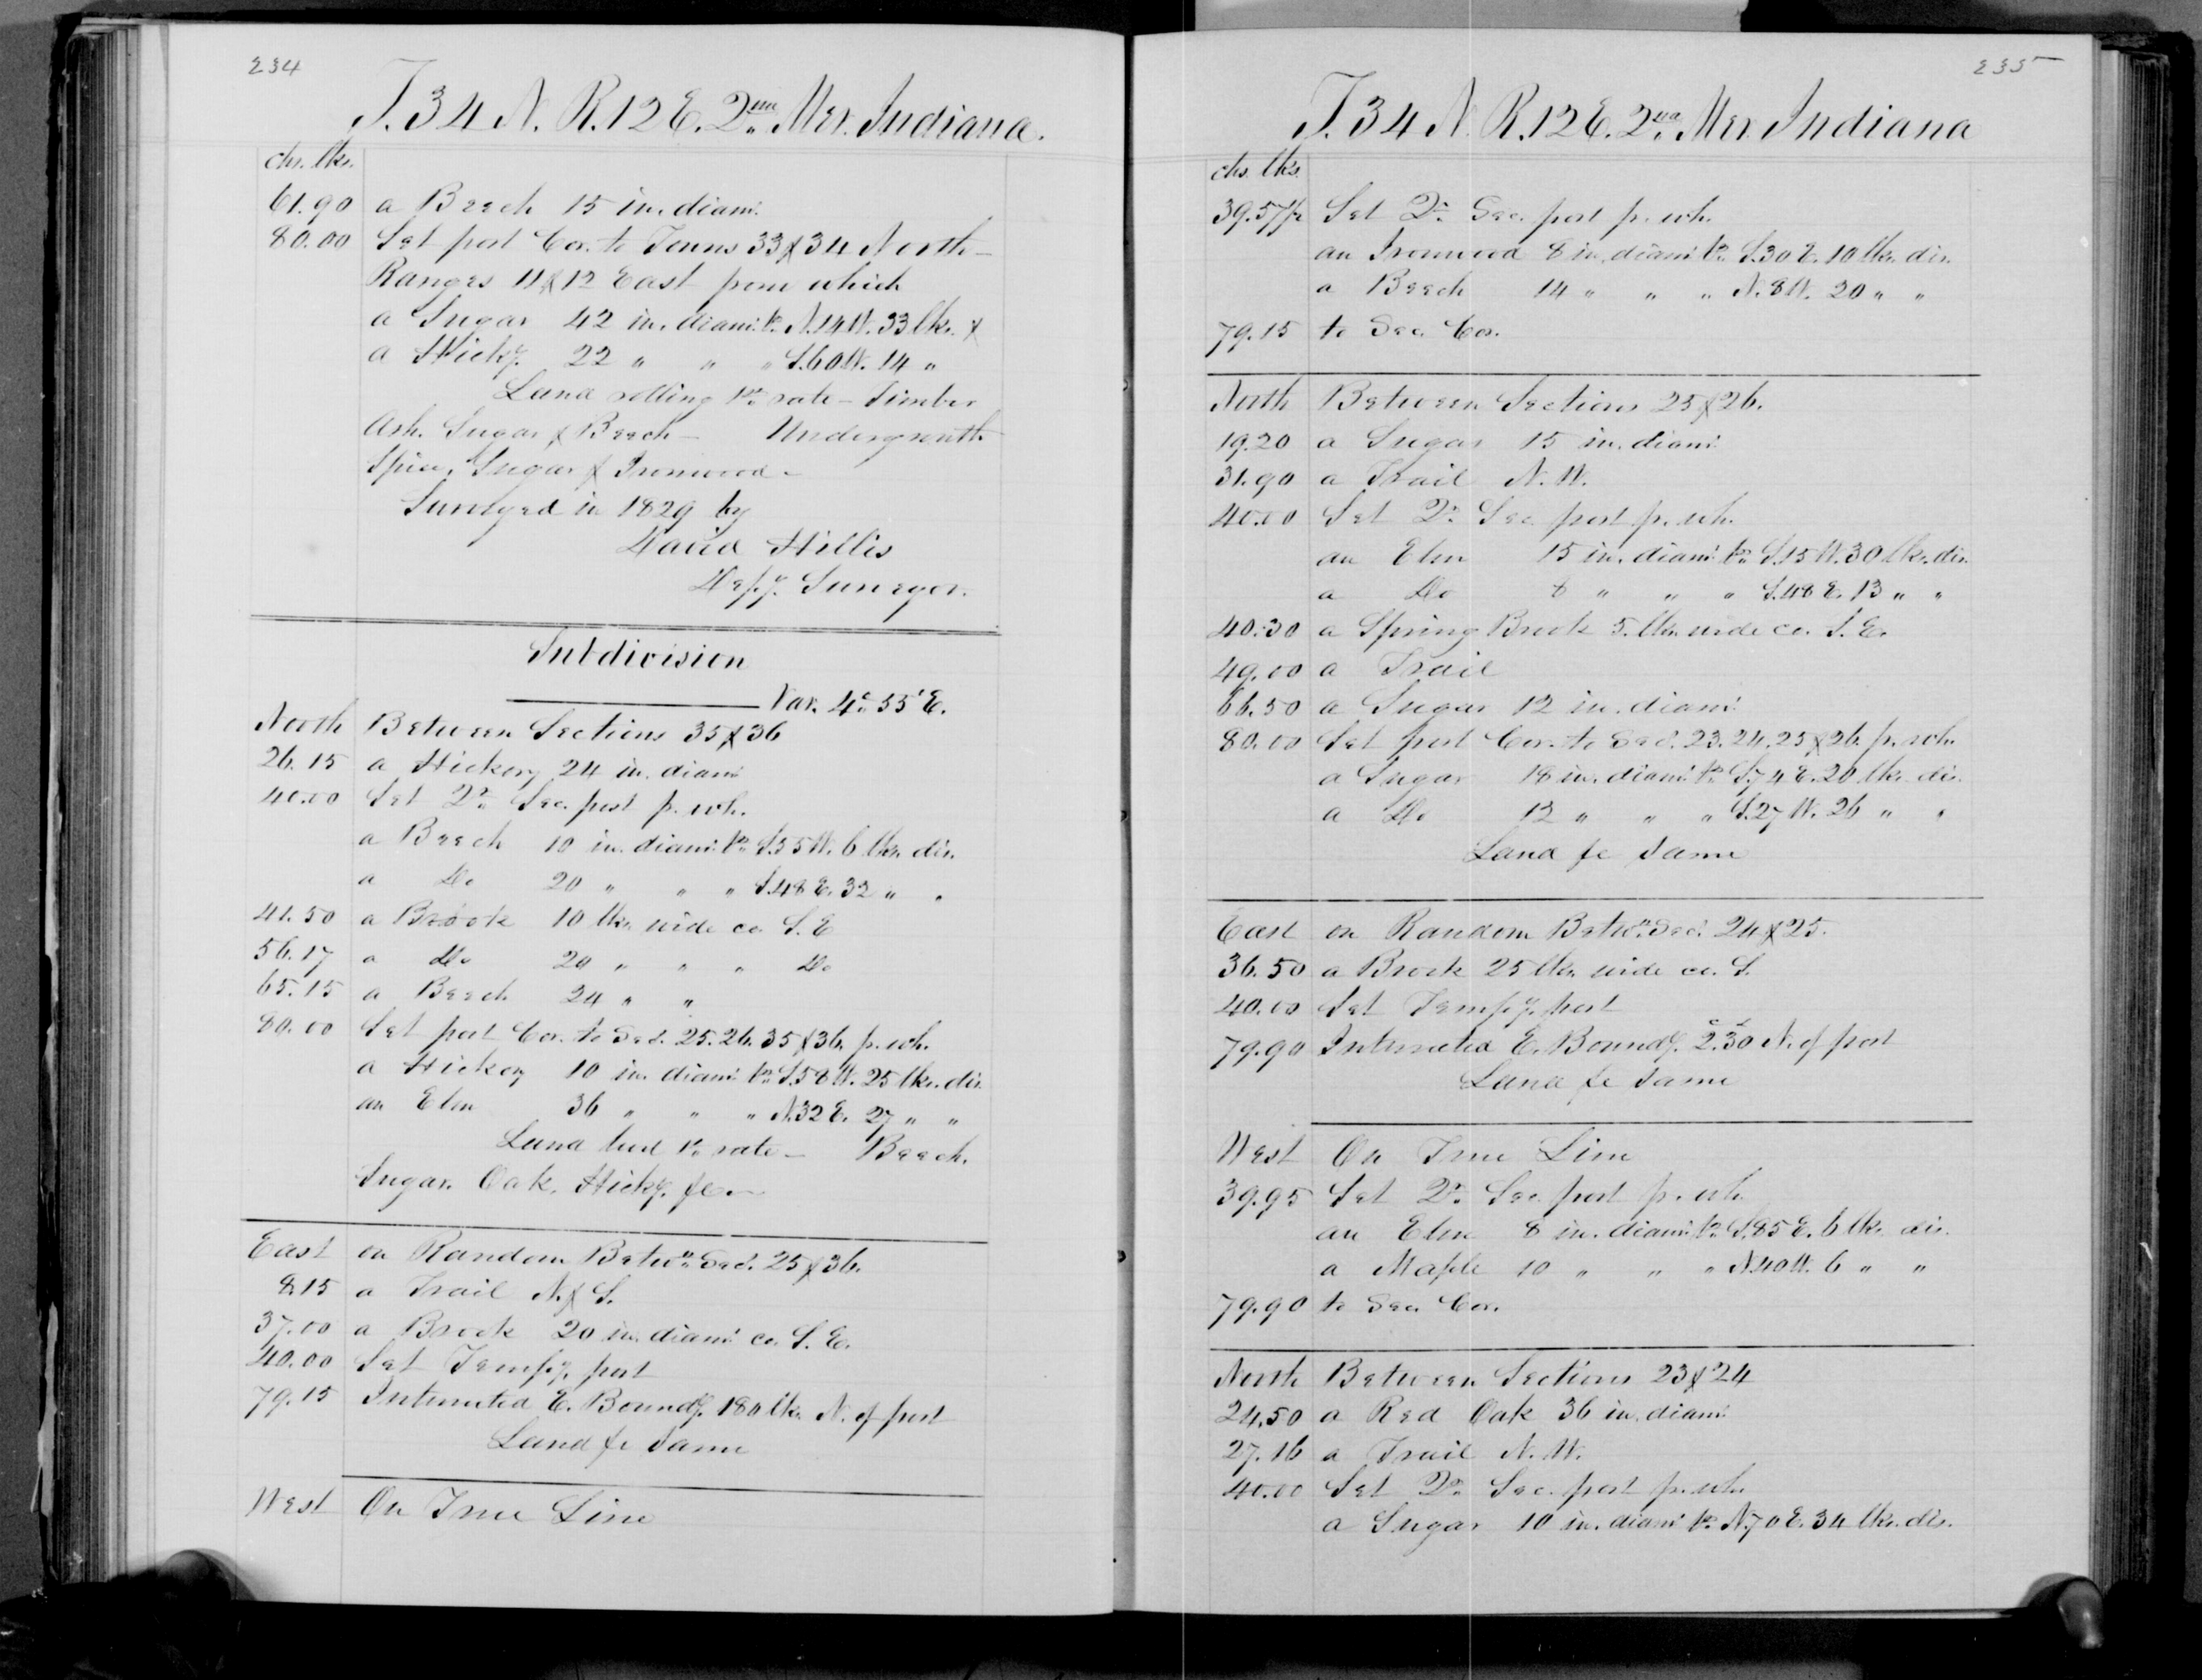 234
T. 34 N. R. 12 E. 2nd Mer. Indiana.
chs. lks.
61.90 a Beech 15 in. diam.
80.00 Set post Cor. to Towns 33 & 34 North -
Ranges 11 & 12 East from which
a Sugar 42 in. diam. br. N. 14 W. 33 lks. &
a Hicky. 22 " " " S. 60 W. 14 "
Land rolling 1st rate - Timber
Ash, Sugar & Beech - Undergrowth
Spice, Sugar & Ironwood -
Surveyed in 1829 by
David Hillis
Depy. Surveyor.
Subdivision
Var. 4° 55' E.
North Between Sections 35 & 36
26.15 a Hickory 24 in. diam.
40.00 Set Qr. Sec. post fr. wh.
a Beech 10 in. diam. br. S. 55 W. 6 lks. dis.
a Do 20 " " " S. 48 E. 32 " "
41.50 a Brook 10 lks. wide co. S. E
56.17 a Do 20 " " " Do
65.15 a Beech 24 " "
80.00 Set post Cor. to Secs. 25. 26. 35 & 36. fr. wh.
a Hickory 10 in. diam. br. S. 58 W. 25 lks. dis.
an Elm 36 " " " N. 32 E. 27 " "
Land level 1st rate - Beech,
Sugar, Oak, Hicky. &c -
East on Random Betwn. Secs. 25 & 36.
8.15 a Trail N. & S.
37.00 a Brook 20 in. diam. co. S. E.
40.00 Set Tempy. post
79.15 Intersected E. Boundy. 180 lks. N. of post
Land &c Same
West On True Line
235
T. 34 N. R. 12 E. 2nd Mer. Indiana
chs. lks.
39.57½ Set Qr. Sec. post fr. wh.
an Ironwood 8 in. diam. br. S. 30 E. 10 lks. dis.
a Beech 14 " " " N. 8 W. 20 " "
79.15 to Sec. Cor.
North Between Sections 25 & 26.
19.20 a Sugar 15 in. diam.
31.90 a Trail N. W.
40.00 Set Qr. Sec. post fr. wh.
an Elm 15 in. diam. br. S. 15 W. 30 lks. dis.
a Do 8 " " " S. 48 E. 13 " "
40.30 a Spring Brook 5. lks. wide co. S. E.
49.00 a Trail
66.50 a Sugar 12 in. diam.
80.00 Set post Cor. to Secs. 23. 24. 25 & 26. fr. wh.
a Sugar 18 in. diam. br. S. 74 E. 20 lks. dis.
a Do 12 " " " S. 27 W. 26 " "
Land &c Same
East on Random Betwn. Secs. 24 & 25.
36.50 a Brook 25 lks. wide co. S.
40.00 Set Tempy. post
79.90 Intersected E. Boundy. 2.30 N. of post
Land &c Same
West On True Line
39.95 Set Qr. Sec. post fr. wh.
an Elm 8 in. diam. br. S. 85 E. 6 lks. dis.
a Maple 10 " " " N. 40 W. 6 " "
79.90 to Sec. Cor.
North Between Sections 23 & 24
24.50 a Red Oak 36 in. diam.
27.16 a Trail N. W.
40.00 Set Qr. Sec. post fr. wh.
a Sugar 10 in. diam. br. N. 70 E. 34 lks. dis.